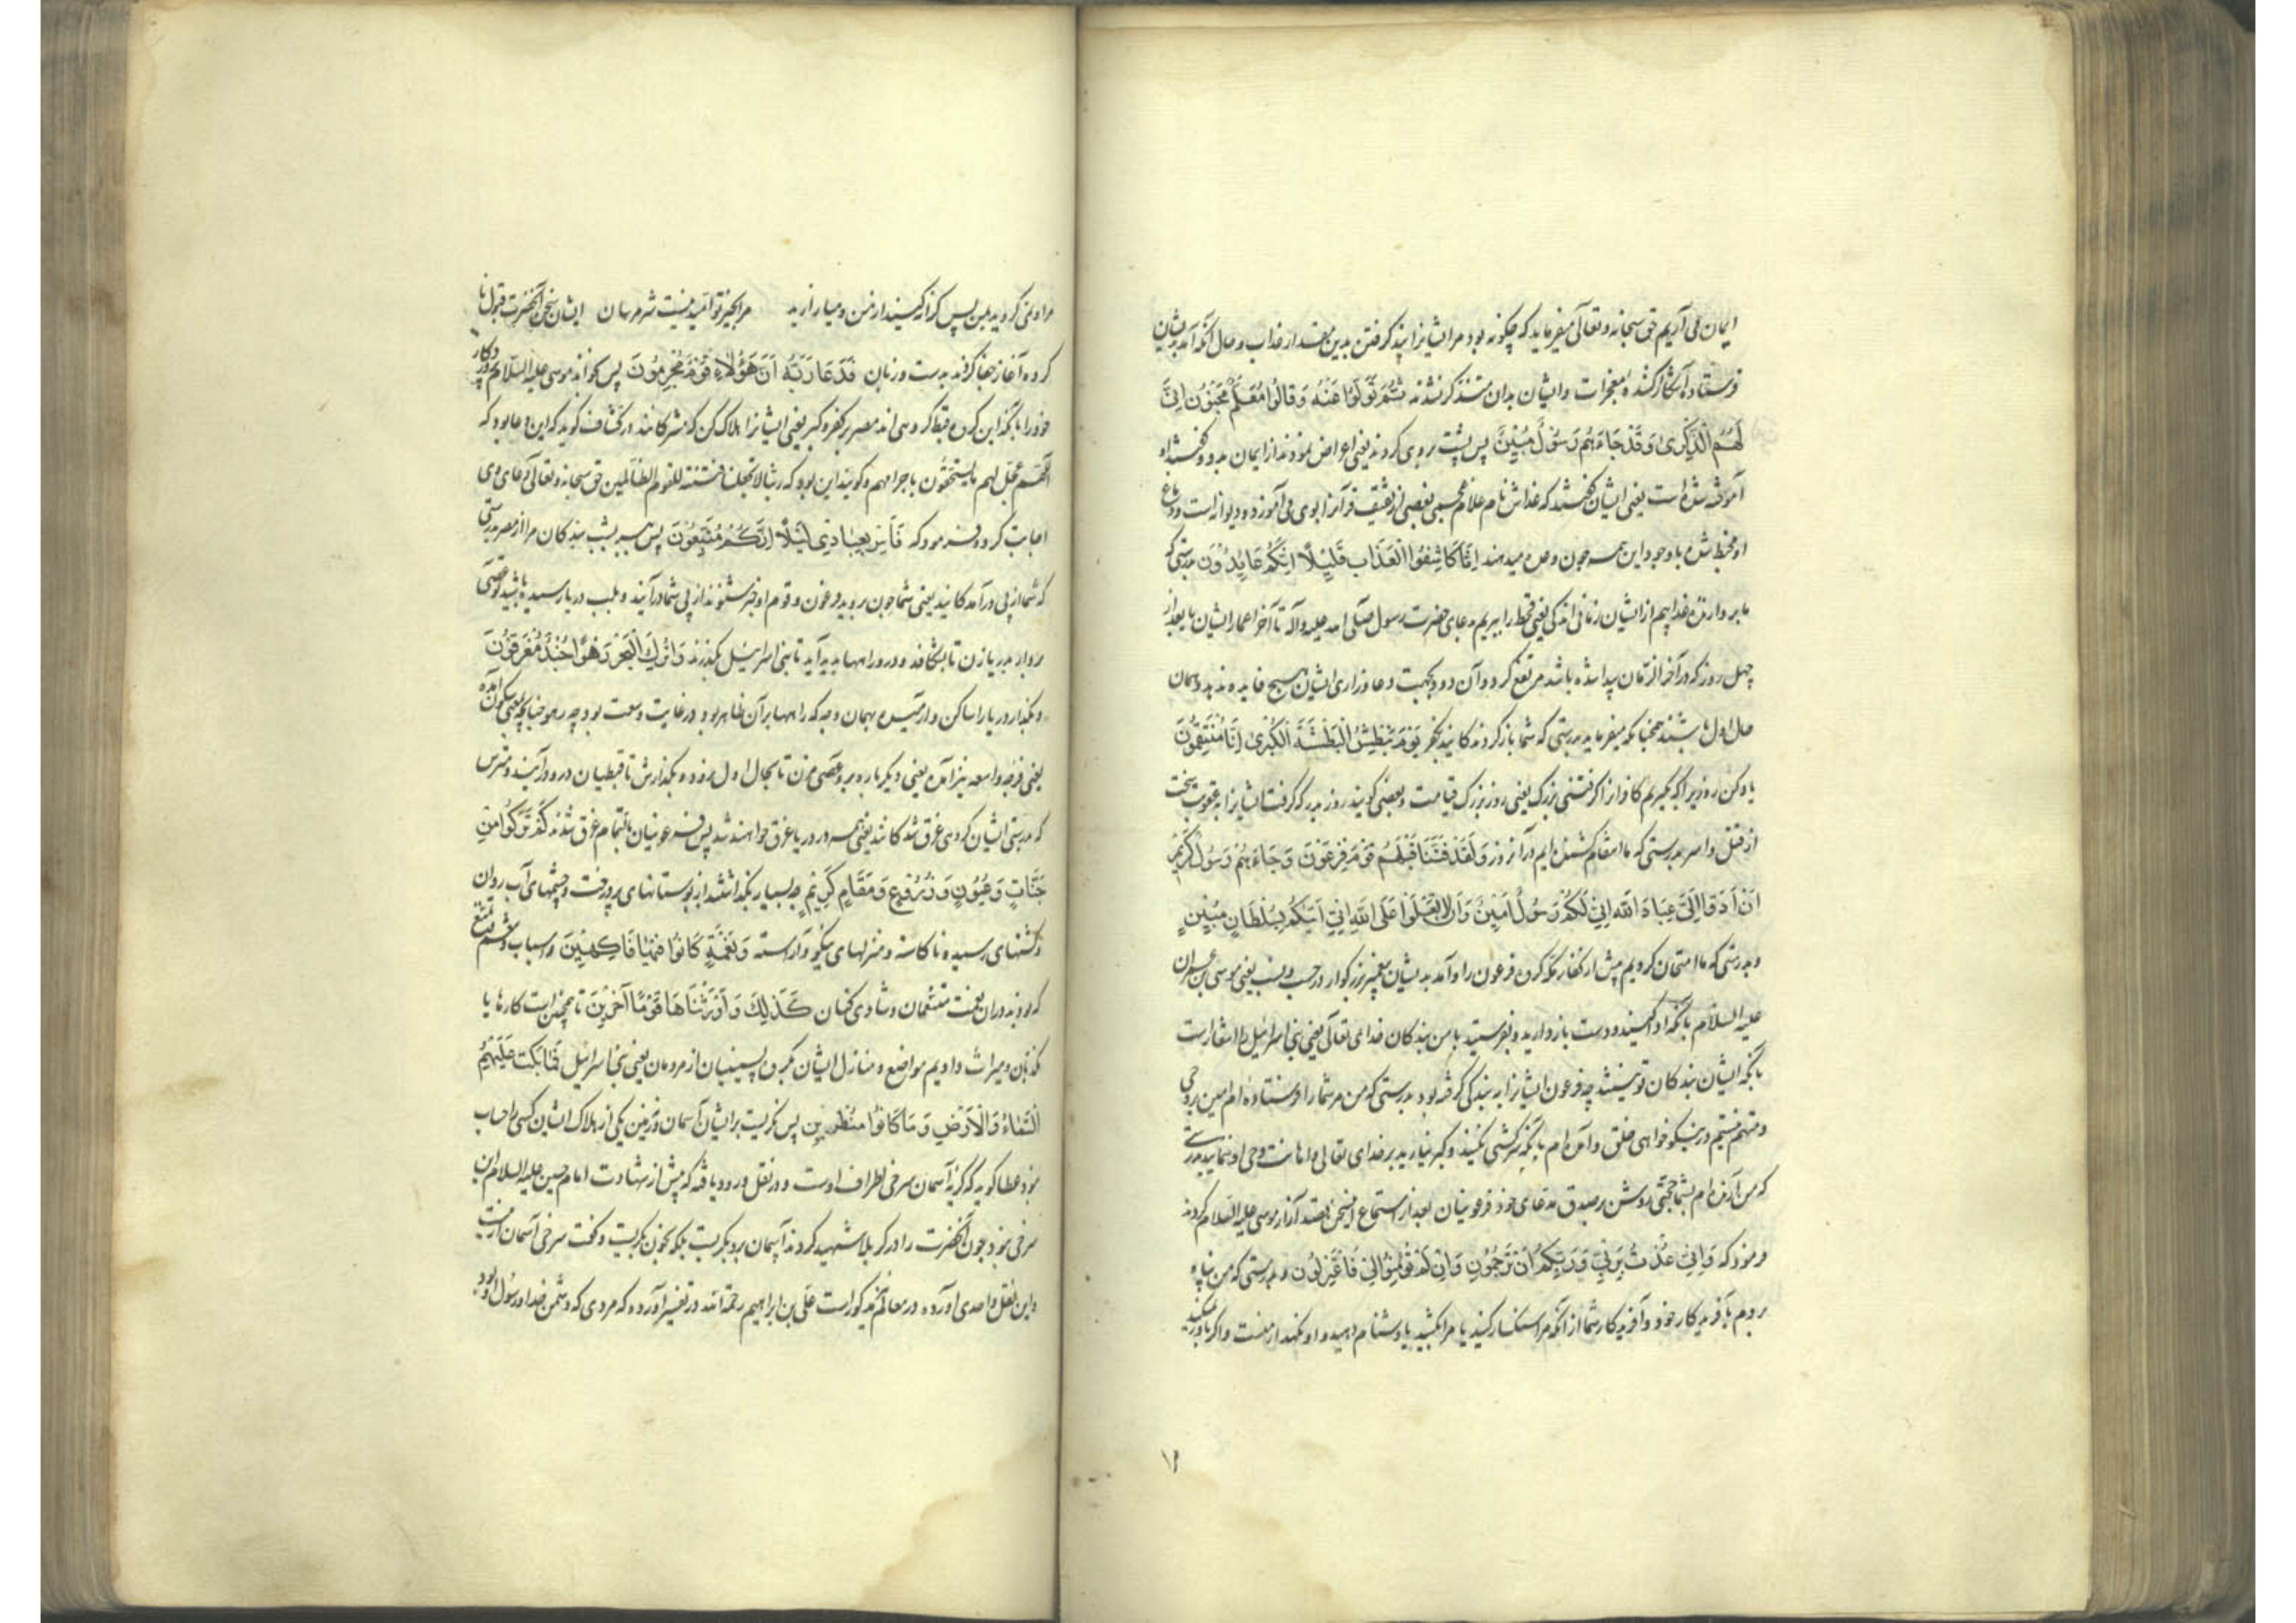 ایمان می آریم حق سبحانه و تعالی میفرماید که چگونه بود مر ایشانرا پند گرفتن بدین مقدار عذاب و حال آنکه آمد بدیشان
فرستاده آشکار کننده معجزات و ایشان بدان متذکر نشدند ثُمَّ تَوَلَّوْا عَنْهُ وَقَالُوا مُعَلَّمٌ مَجْنُونٌ اَنَّی
لَهُمُ الذِّكْرٰى وَقَدْ جَاءَهُمْ رَسُولٌ مُبِينٌ پس پشت بروی کردند یعنی اعراض نمودند از ایمان بدو و گفتند او
آموخته شده است یعنی ایشان گفتند که عداش نام غلام بعضی از ثقیف قرآنرا بوی می آموزد و دیوانه است و دماغ
او مخبط شده با وجود این همه چون وعده میدهند اِنَّا كَاشِفُوا الْعَذَابِ قَلِيلًا اِنَّكُمْ عَايِدُونَ بدرستی که
ما بر دارنده عذابیم از ایشان زمانی اندکی یعنی قحط را ببریم بدعای حضرت رسول صلی الله علیه وآله تا آخر اعمار ایشان یا بعد از
چهل روز که در آخر الزمان پیدا شده باشد مرتفع گردد و آن دود بجهت دعا و زاری ایشان هیچ فایده ندهد و همان
حال اول باشند همچنانکه میفرماید بدرستی که شما باز گردندگانید بکفر يَوْمَ نَبْطِشُ الْبَطْشَةَ الْكُبْرٰى اِنَّا مُنْتَقِمُونَ
یاد کن روزیرا که بگیریم کافرانرا گرفتنی بزرگ یعنی روز بزرگ قیامت و بعضی گویند روز بدر که گرفت ایشانرا بعقوبت سخت
از قتل و اسر بدرستی که ما انتقام کشنده ایم در آنروز وَلَقَدْ فَتَنَّا قَبْلَهُمْ قَوْمَ فِرْعَوْنَ وَجَاءَهُمْ رَسُولٌ كَرِيمٌ
اَنْ اَدُّوا اِلَيَّ عِبَادَ اللّٰهِ اِنِّي لَكُمْ رَسُولٌ اَمِينٌ وَاَنْ لَا تَعْلُوا عَلَى اللّٰهِ اِنِّي اٰتِيكُمْ بِسُلْطَانٍ مُبِينٍ
و بدرستی که ما امتحان کردیم پیش از کفار مکه گروه فرعون را و آمد بدیشان پیغمبر بزرگوار در حسب و نسب یعنی موسی بن عمران
علیه السلام بآنکه ادا کنید و دست باز دارید و بفرستید با من بندگان خدای تعالی یعنی بنی اسرائیل را
بآنکه ایشان بندگان تو نیستند چه فرعون ایشانرا به بندگی گرفته بود بدرستی که من مر شما را فرستاده ام امین بر وحی
و متهم نیستم در نیکو خواهی خلق و آمده ام بآنکه سرکشی نکنید و تکبر نیارید بر خدای تعالی و اهانت وحی او ننمایید بدرستی
که من آرنده ام بشما حجتی روشن بر صدق مدعای خود فرعونیان بعد از استماع اینسخن قصد آزار موسی علیه السلام کردند
فرمود که وَاِنِّي عُذْتُ بِرَبِّي وَرَبِّكُمْ اَنْ تَرْجُمُونِ وَاِنْ لَمْ تُؤْمِنُوا لِي فَاعْتَزِلُونِ و بدرستی که من پناه
بردم بآفریدگار خود و آفریدگار شما از آنکه مرا سنگسار کنید یا مرا بکشید یا دشنام دهید و او نگهدار منست و اگر باور نمیکنید
۱۶
مرا و نمی گروید بمن پس کرانه گیرید از من و میازارید مرا بخیر تو امید نیست شر مرسان ایشان سخن آنحضرت قبول نا
کرده آغاز جفا کردند بدست و زبان فَدَعَا رَبَّهُ اَنَّ هَؤُلَاءِ قَوْمٌ مُجْرِمُونَ پس بخواند موسی علیه السلام پروردگار
خود را بآنکه این گروه قبط گروهی اند مصر بر کفر و کبر یعنی ایشانرا هلاک کن که مشرکانند در کشاف گوید که این دعا بود که
اللهم عجل لهم ما یستحقون باجرامهم و گویند این بود که ربنا لا تجعلنا فتنة للقوم الظالمین حق سبحانه و تعالی دعای وی
اجابت کرد و فرمود که فَاَسْرِ بِعِبَادِي لَيْلًا اِنَّكُمْ مُتَّبَعُونَ پس ببر بشب بندگان مرا از مصر بدرستی
که شما از پی در آمدگانید یعنی شما چون بروید فرعون و قوم او خبر شنوند از پی شما در آیند و بلب دریا رسیده باشید تو عصی
بردار بدریا زن تا بشکافد و در و راهها پدید آید تا بنی اسرائیل بگذرند وَاتْرُكِ الْبَحْرَ رَهْوًا اِنَّهُمْ جُنْدٌ مُغْرَقُونَ
و بگذار دریا را ساکن و آرمیده بهمان وجه که راهها بر آن ظاهر بود و در غایت وسعت بود چه رهو چنانچه بمعنی سکون آمده
یعنی فرجه واسعه نیز آمده یعنی دیگر باره برو عصی مزن تا بحال اول رود و بگذارش تا قبطیان درو در آیند و مترس
که بدرستی ایشان گروهی غرق شدگانند یعنی همه در دریا غرق خواهند شد پس فرعونیان بالتمام غرق شدند كَمْ تَرَكُوا مِنْ
جَنَّاتٍ وَعُيُونٍ وَزُرُوعٍ وَمَقَامٍ كَرِيمٍ چه بسیار بگذاشتند از بوستانهای پر درخت و چشمهای آب روان
و کشتهای رسیده نا کاسته و منزلهای نیکو و آراسته وَنَعْمَةٍ كَانُوا فِيهَا فَاكِهِينَ و اسباب و تنعم تمتع
که بودند در ان نعمت متنعمان و شادی کنان كَذٰلِكَ وَاَوْرَثْنَاهَا قَوْمًا اٰخَرِينَ همچنین است کارها با
مکذبان و میراث دادیم مواضع و منازل ایشان بگروه پسینیان از مردمان یعنی بنی اسرائیل فَمَا بَكَتْ عَلَيْهِمُ
السَّمَاءُ وَالْاَرْضُ وَمَا كَانُوا مُنْظَرِينَ پس نگریست بر ایشان آسمان و زمین یکی از هلاک ایشان کسی را حساب
نبود عطا گوید که گریه آسمان سرخی اطراف اوست و در نقل ورود یافته که پیش از شهادت امام حسین علیه السلام این
سرخی نبود چون آنحضرت را در کربلا شهید کردند آسمان برو بگریست بلکه بخون بگریست و گفت سرخی آسمان از آنست
و این نقل واحدی آورده و در معالم مذکور است علی بن ابراهیم رحمة الله در تفسیر آورده که مردی که دشمن خدا و رسول او بود